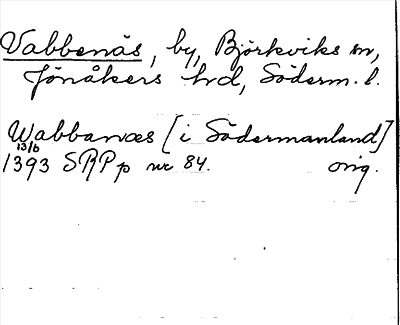 Vabbenäs, by, Björkviks sn,
Jönåkers hd, Söderm. l.
Wabbanæs [i Södermanland]
13/6
1393 SRPp nr 84. orig.